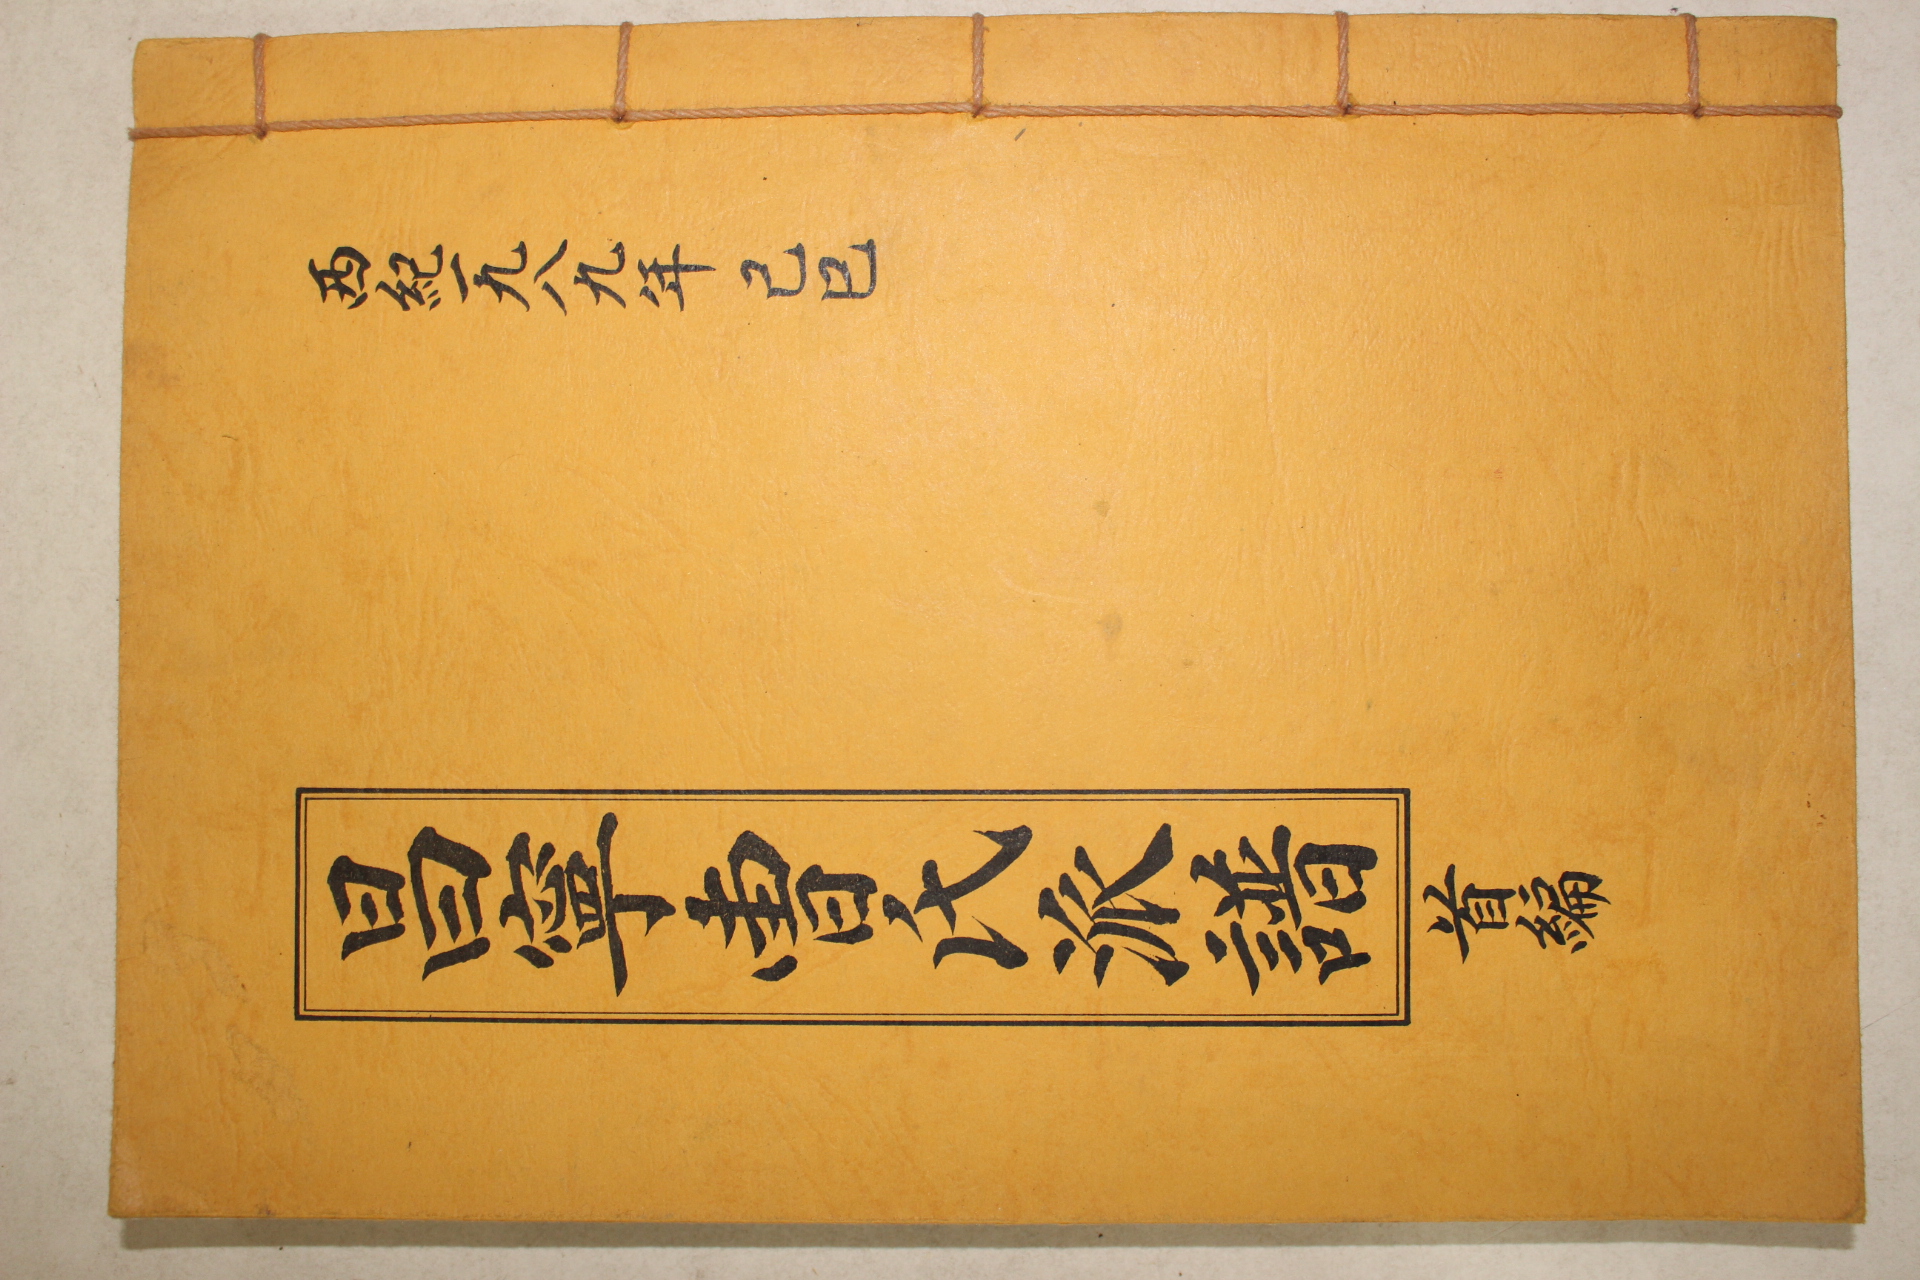 西紀一九八九年 己巳
昌寧曺氏派譜
首編